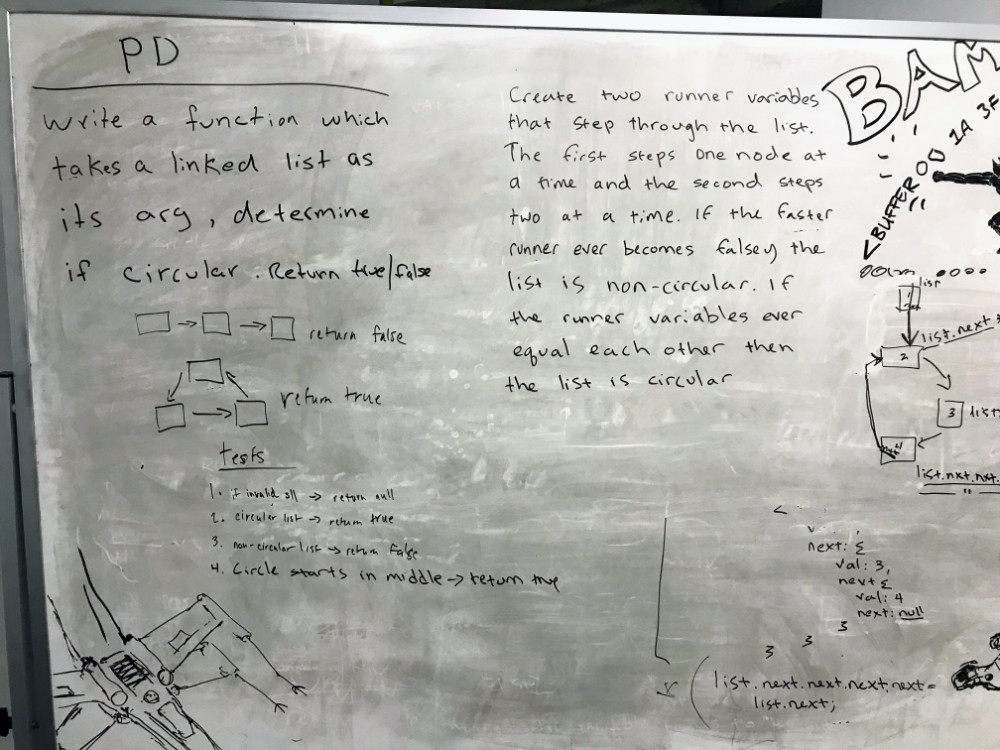 PD
Write a function which
takes a linked list as
its arg, determine
if circular. Return true/false
return false
return true
tests
1. if invalid sll → return null
2. circular list → return true
3. non-circular list → return false
4. Circle starts in middle → return true
Create two runner variables
that step through the list.
The first steps one node at
a time and the second steps
two at a time. If the faster
runner ever becomes falsey the
list is non-circular. If
the runner variables ever
equal each other then
the list is circular
BAM
<BUFFER 00 1A 3F
list
list.next
2
3 list
list.nxt.nxt.
next: {
val: 3,
next {
val: 4
next: null
}
}
}
list.next.next.next.next =
list.next;